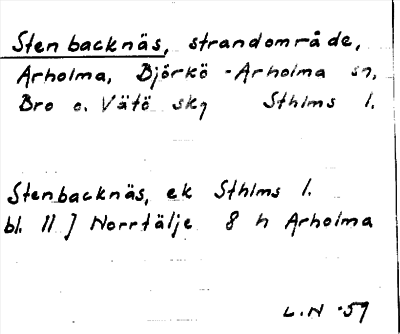 Stenbacknäs, strandområde,
Arholma, Björkö-Arholma sn,
Bro o. Vätö skg Sthlms l.
Stenbacknäs, ek Sthlms l.
bl. 11 J Norrtälje 8 h Arholma
L.N -59